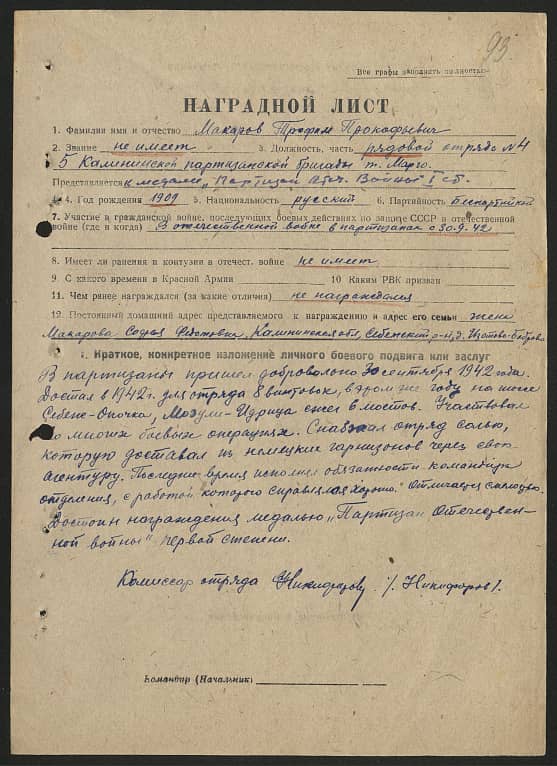 93.
Все графы заполнять полностью
НАГРАДНОЙ ЛИСТ
1. Фамилия имя и отчество Макаров Трофим Прокофьевич
2. Звание не имеет 3. Должность, часть рядовой отряда №4
5 Калининской партизанской бригады т. Марго.
Представляется к медали „Партизан Отеч. Войны" I ст.
4. Год рождения 1909 5. Национальность русский 6. Партийность Беспартийный
7. Участие в гражданской войне, последующих боевых действиях по защите СССР и отечественной
войне (где и когда) В отечественной войне в партизанах с 30.9.42
8. Имеет ли ранения и контузии в отечест. войне не имеет
9. С какого времени в Красной Армии 10 Каким РВК призван
11. Чем ранее награждался (за какие отличия) не награждался
12. Постоянный домашний адрес представляемого к награждению и адрес его семьи жена
Макарова Софья Калининская обл, Себежский р-н, д.
1. Краткое, конкретное изложение личного боевого подвига или заслуг
В партизаны пришел добровольно 30 сентября 1942 года.
Достал в 1942 г. для отряда 8 винтовок, в этом же году на шоссе
Себеж-Опочка, Мозули-Идрица сжег 6 мостов. Участвовал
во многих боевых операциях. Снабжал отряд солью,
которую доставал из немецких гарнизонов через свою
агентуру. Последнее время исполнял обязанности командира
отделения, с работой которого справлялся хорошо. Отличался смелостью.
Достоин награждения медалью „Партизан Отечествен-
ной войны" первой степени.
Комиссар отряда Никифоров /Никифоров/.
Командир (Начальник)